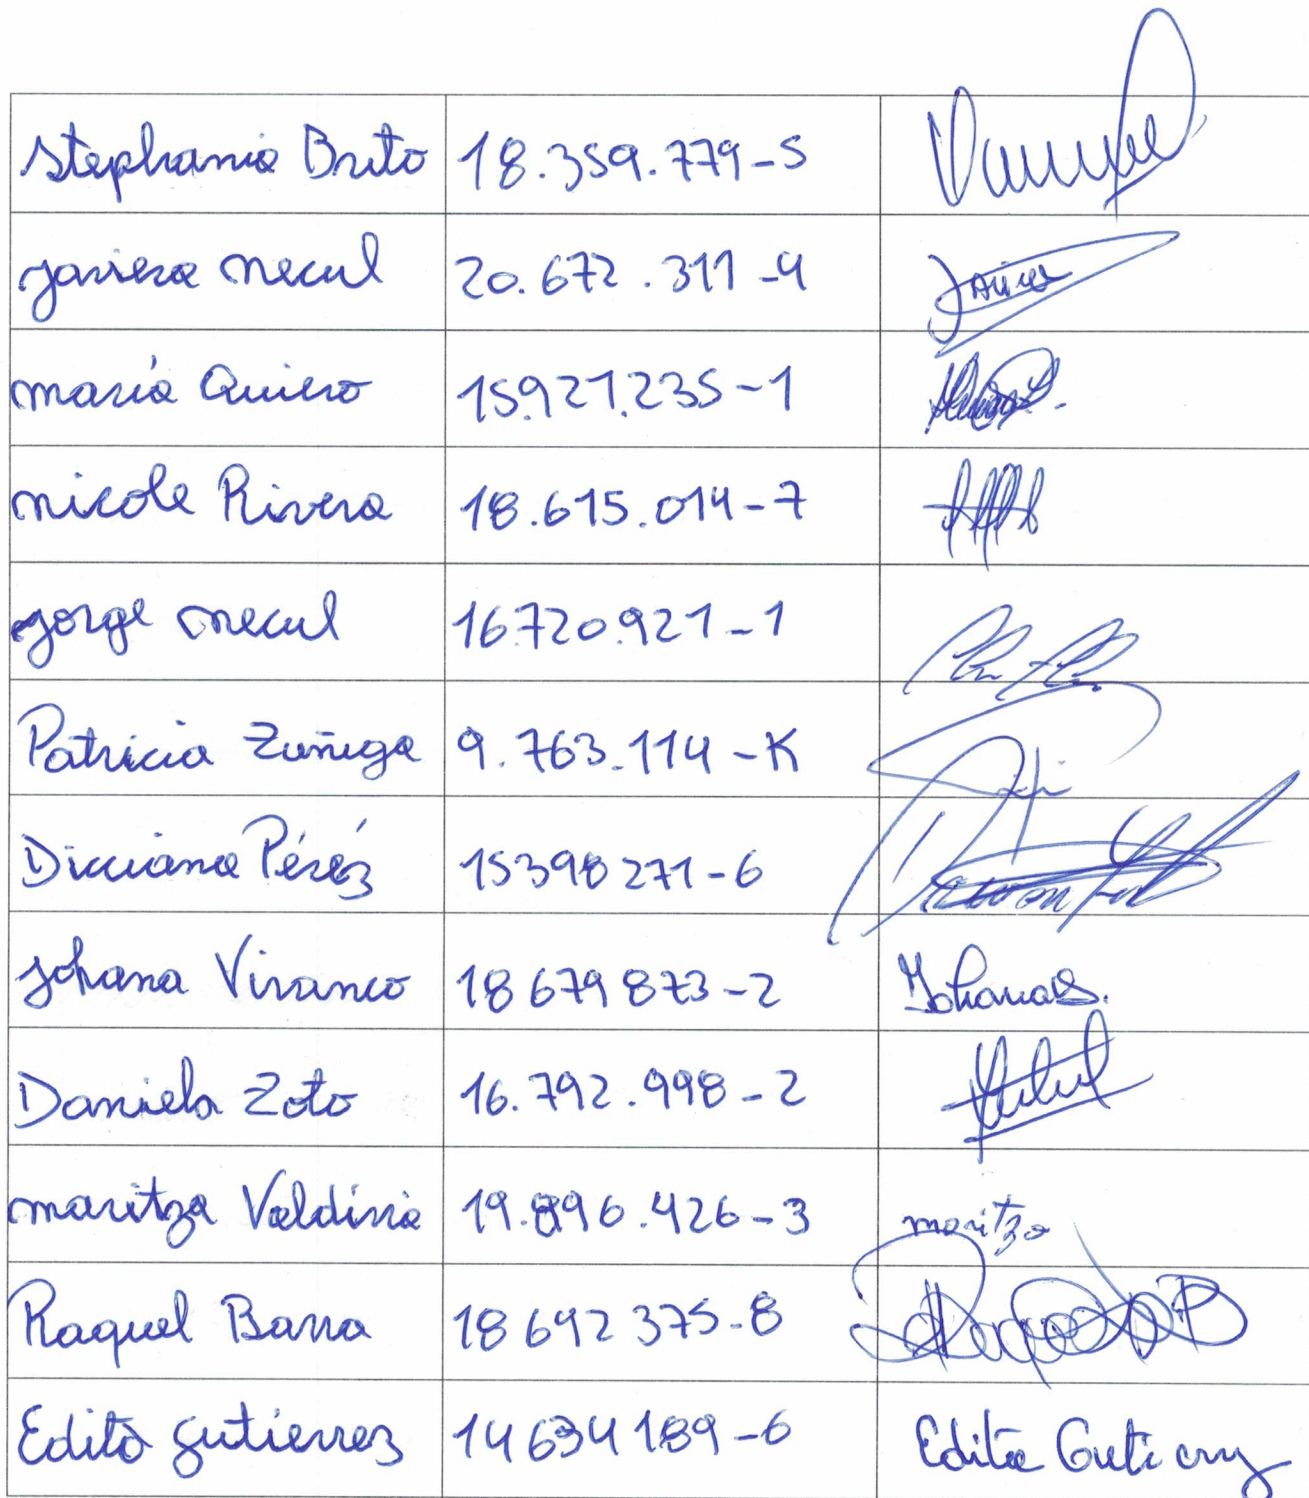 Stephania Brito 18.359.779-5
Javiera Necul 20.672.311-4 Javiera
María Quiero 15.927.235-1
Nicole Rivera 18.615.014-7
Jorge Necul 16.720.921-1
Patricia Zuñiga 9.763.114-K
Pérez 15398271-6
Johana Vivanco 18679873-2 Johana
Daniela Zoto 16.792.998-2
Maritza Valdivia 19.896.426-3 Maritza
Raquel Barra 18692375-8
Edita Gutierrez 14634189-6 Edita